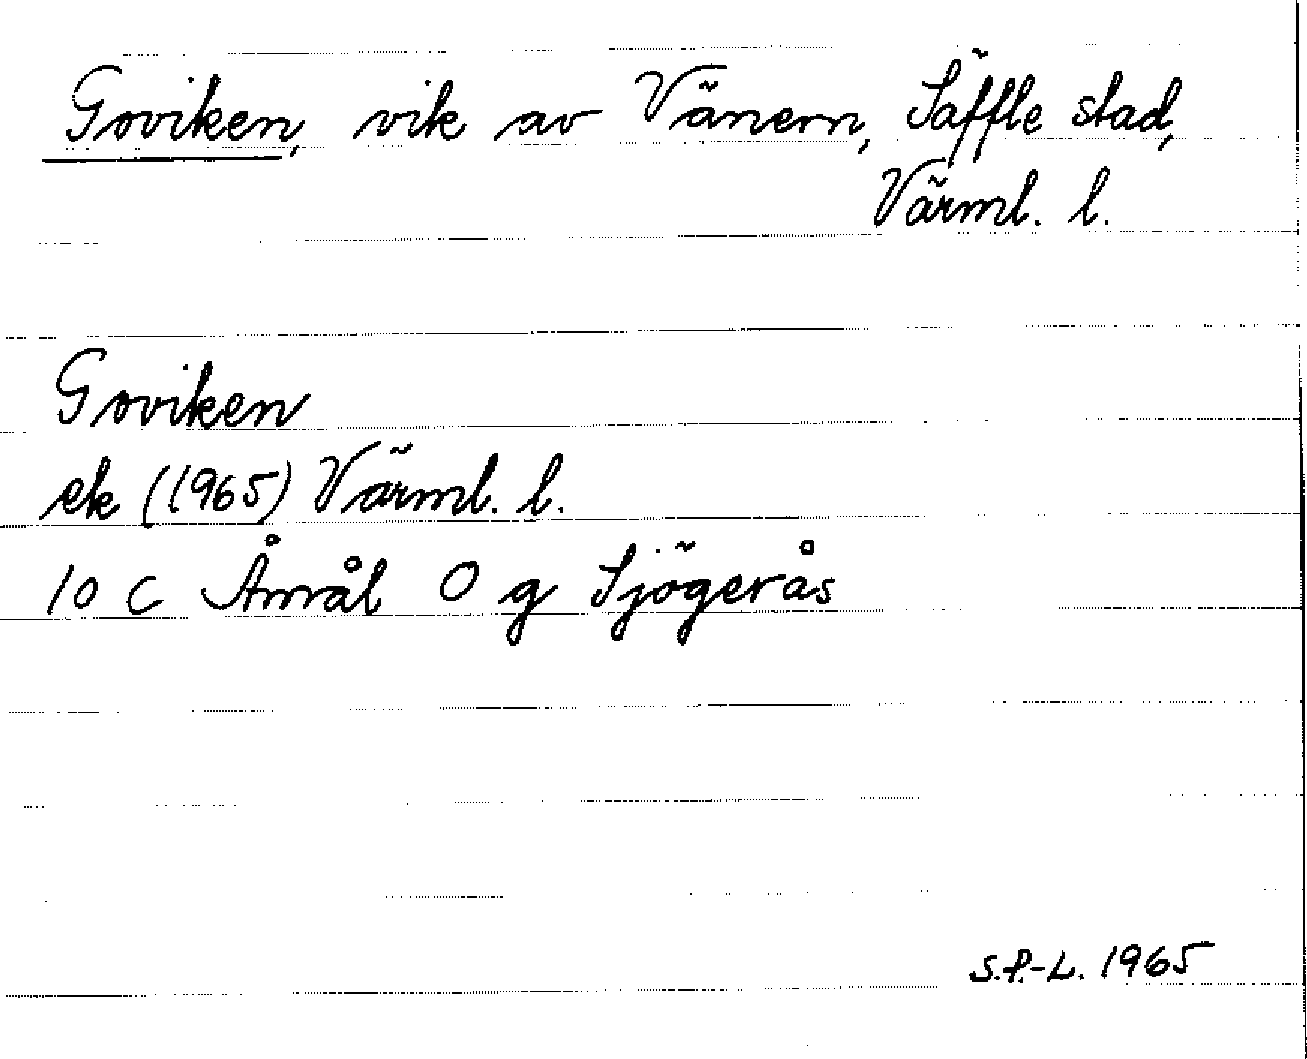 Goviken, vik av Vänern, Säffle stad,
Värml. l.
Goviken
ek (1965) Värml. l.
10 C Åmål O g Sjögerås
S.P.-L. 1965